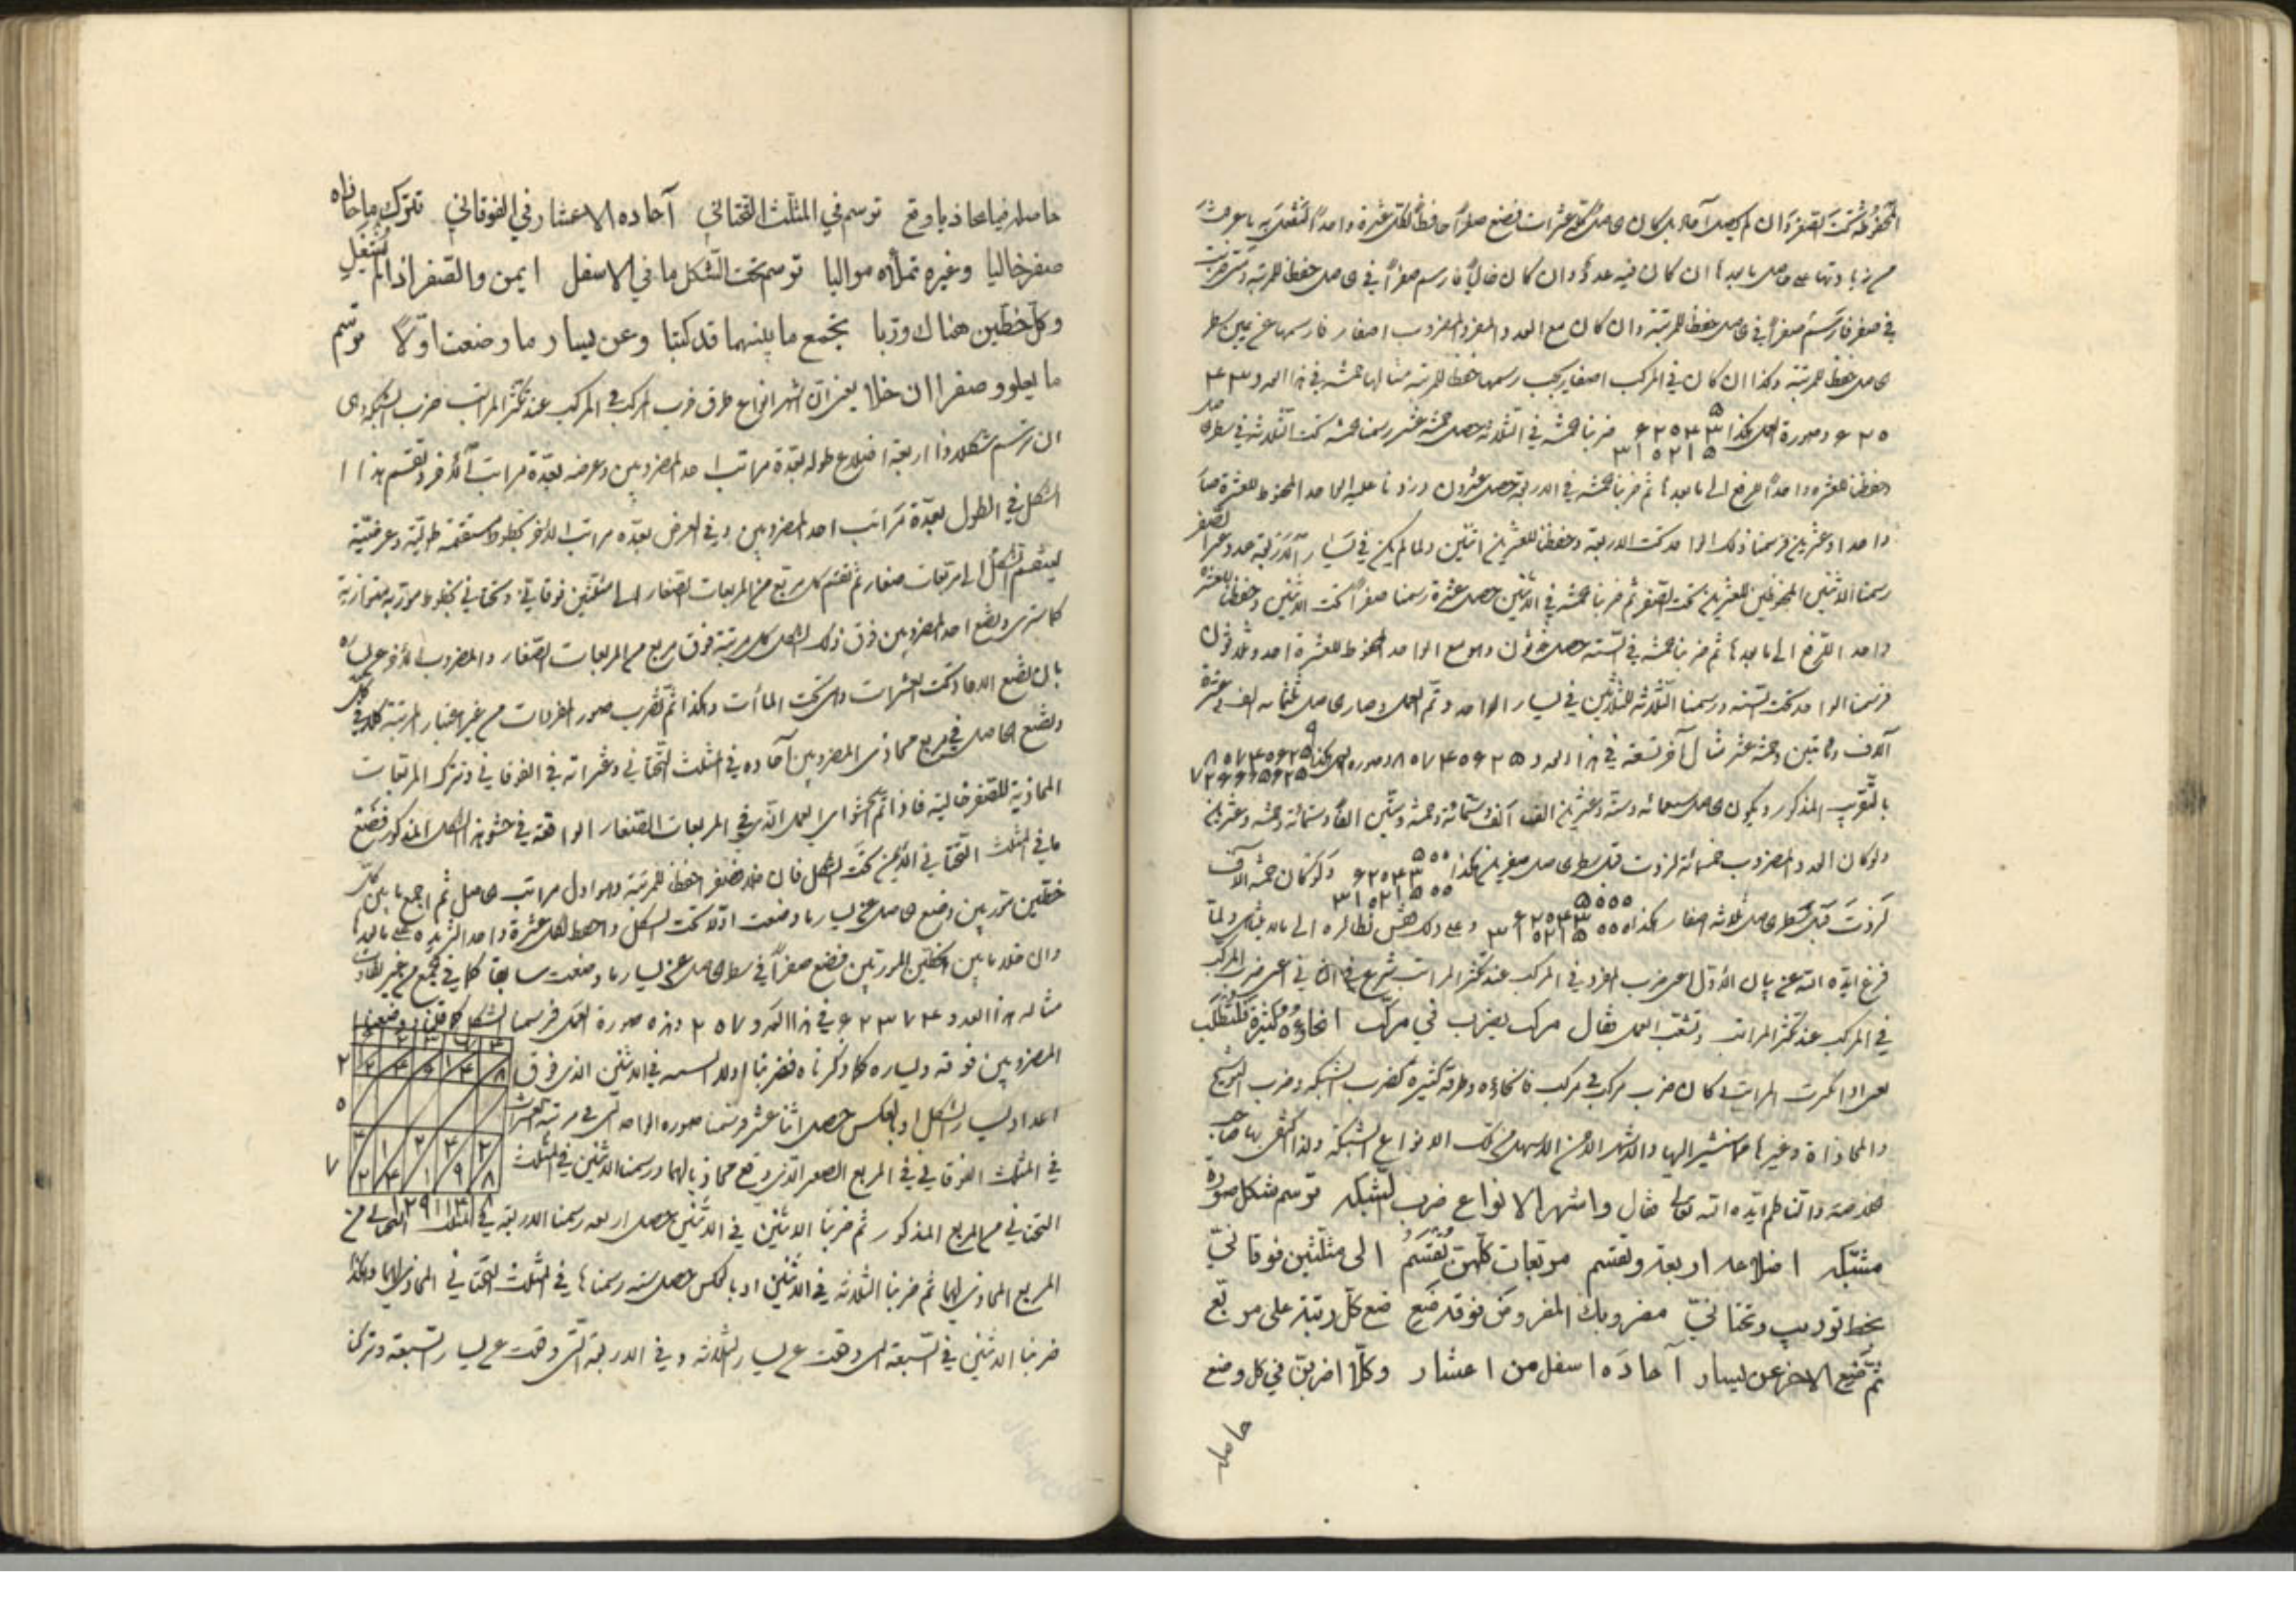 المحفوظة تحت الصفر وان لم يحصل آحاد بل كان الحاصل كله عشرات فضع صفراً حافظاً لكل عشرة واحداً لتفعل به ما عرفت
من زيادتها على حاصل ما بعدها ان كان فيه عدد وان كان خالياً فارسم صفراً في الحاصل حفظا للمرتبة
في صفر فارسم صفراً في الحاصل حفظا للمرتبة وان كان مع العدد المفرد المضروب اصفار فارسمها عن يمين سطر
الحاصل حفظا للمرتبة وكذا ان كان في المركب اصفار يجب رسمها حفظا للمرتبة مثالها خمسة في هذا العدد ٤٣
٦٢٠ وصورة العمل هكذا ٥ ٦٢٠٤٣ ٣١٠٢١٥ ضربنا خمسة في الثلاثة حصل خمسة عشر رسمنا خمسة تحت الثلاثة في سطر الحاصل
وحفظنا للعشرة واحداً لترفع الى ما بعدها ثم ضربنا خمسة في الاربعة حصل عشرون وزدنا عليه الواحد المحفوظ للعشرة صار
واحدا وعشرين فرسمنا ذلك الواحد تحت الاربعة وحفظنا للعشرين اثنين ولما لم يكن في يسار الاربعة عدد وغير الصفر
رسمنا الاثنين المحفوظين للعشرين تحت الصفر ثم ضربنا خمسة في الاثنين حصل عشرة رسمنا صفراً تحت الاثنين وحفظنا للعشرة
واحدا لترفع الى ما بعدها ثم ضربنا خمسة في الستة حصل ثلثون وهو مع الواحد المحفوظ للعشرة احد وثلثون
فرسمنا الواحد تحت الستة ورسمنا الثلاثة للثلثين في يسار الواحد وتم العمل وصار الحاصل ثلثمائة الف وعشرة
آلاف ومائتين وخمسة عشر مثال آخر تسعة في هذا العدد
بالتقريب المذكور ويكون الحاصل سبعمائة وستة وعشرين الف الف وستمائة وخمسة وستين الفاً وستمائة وخمسة وعشرين
ولو كان العدد المضروب خمسمائة لزدت قبل سطر الحاصل صفرين هكذا ٥٠٠ ٦٢٠٤٣ ٣١٠٢١٥٠٠ ولو كان خمسة الآف
لزدت قبل سطر الحاصل ثلاثة اصفار هكذا ٥٠٠٠ ٦٢٠٤٣ ٣١٠٢١٥٠٠٠ وعلى ذلك فقس نظائره الى ما لا يتناهى ولما
فرغ ايده الله عن بيان الاول اعني ضرب المفرد في المركب عند تكثر المراتب شرع في الثاني اعني ضرب المركب
في المركب عند تكثر المراتب وتشعب العمل فقال مركب يضرب في مركب انحاؤه كثيرة
يعني اذا كثرت المراتب وكان ضرب مركب في مركب فانحاؤه وطرقه كثيرة كضرب الشبكة وضرب التوشيح
والمحاذاة وغيرها مما نشير اليها والاشهر الاحسن الاسهل من تلك الانواع الشبكة ولذا اكتفى بها صاحب
الخلاصة والناظم ايده الله تعالى فقال واشهر الانواع ضرب الشبكه توسم شكل صورة
مشبكه اضلاعه اربعة وتقسم مربعات كلهن تقسم الى مثلثين فوقاني
بخط توريب وتحتاني مضروبك المفروض فوقه ضع ضع كل رتبة على مربع
ثم ضع الاخر عن يسار آحاده اسفل من اعشار وكلا اضربن في كل وضع
حاصله
حاصله فيما يحاذيا وقع توسم في المثلث التحتاني آحاده الاعشار في الفوقاني تترك ما حاذاه
صفر خاليا وغيره تملأه مواليا توسم تحت الشكل ما في الاسفل ايمن والصفر اذا لم يشغل
وكل خطين هناك وربا تجمع ما بينهما قد كتبا وعن يسار ما وضعت اولاً توسم
ما يعلو وصفرا ان خلا يعني ان اشهر انواع طرق ضرب المركب في المركب عند تكثر المراتب ضرب الشبكة وهي
ان ترسم شكلا ذا اربعة اضلاع طوله بعدة مراتب احد المضروبين وعرضه بعدة مراتب الآخر وتقسم هذا ا
الشكل في الطول بعدة مراتب احد المضروبين وفي العرض بعدة مراتب الاخر بخطوط مستقيمة طولية وعرضية
لينقسم الشكل الى مربعات صغار ثم تقسم كل مربع من المربعات الصغار الى مثلثين فوقاني وتحتاني بخطوط موربة متوازية
كما سترى وتضع احد المضروبين فوق ذلك الشكل كل مرتبة فوق مربع من المربعات الصغار والمضروب الآخر على يساره
بان تضع الاحاد تحت العشرات وهي تحت المآت وهكذا ثم تضرب صور المفردات من غير اعتبار المرتبة كلا في كل
وتضع الحاصل في مربع محاذي المضروبين آحاده في المثلث التحتاني وعشراته في الفوقاني وتترك المربعات
المحاذية للصفر خالية فاذا تم الحشو اي العمل الذي في المربعات الصغار الواقعة في حشو هذا الشكل المذكور فضع
ما في المثلث التحتاني الايمن تحت الشكل فان خلا فصفر احفظ للمرتبة وهو اول مراتب الحاصل ثم اجمع ما بين كل
خطين موربين وضع الحاصل عن يسار ما وضعت اولا تحت الشكل واحفظ لكل عشرة واحدا لتزيده على ما بعدها
وان خلا ما بين الخطين الموربين فضع صفراً في سطر الحاصل عن يسار ما وضعت سابقا كما في الجمع من غير تفاوت
مثاله هذا العدد ٦٢٣٧٤ في هذا العدد ٢٥٧ وهذه صورة العمل فرسمنا الشكل كما قلنا ووضعنا
المضروبين فوقه ويساره كما ذكرناه فضربنا اولا الستة في الاثنين الذي فوق
اعداد يسار الشكل او بالعكس حصل اثنا عشر رسمنا صورة الواحد التي في مرتبة العشرات
في المثلث الفوقاني في المربع الصغير الذي وقع محاذيا لهما ورسمنا الاثنين في المثلث
التحتاني من المربع المذكور ثم ضربنا الاثنين في الاثنين حصل اربعة رسمنا الاربعة في المثلث التحتاني من
المربع المحاذي لهما ثم ضربنا الثلاثة في الاثنين او بالعكس حصل ستة رسمناها في المثلث التحتاني المحاذي لهما وهكذا
ضربنا الاثنين في السبعة التي وقعت على يسار الثلاثة وفي الاربعة التي وقعت على يسار السبعة وتركنا